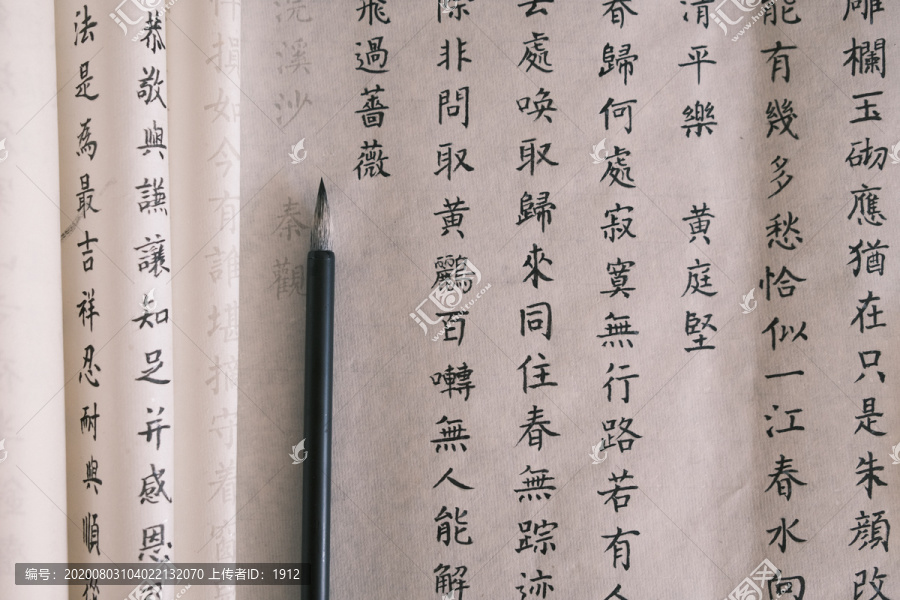 雕欄玉砌應猶在只是朱顔改
能有幾多愁恰似一江春水向
清平樂 黄庭堅
春歸何處寂寞無行路若有人
去處唤取歸來同住春無踪迹
除非問取黄鸝百囀無人能解
飛過薔薇
浣溪沙 秦觀
損如今有誰堪摘守着窗
恭敬與謙讓知足并感恩
法是為最吉祥忍耐與順從
编号：20200803104022132070 上传者ID：1912
汇图网
www.huitu.com